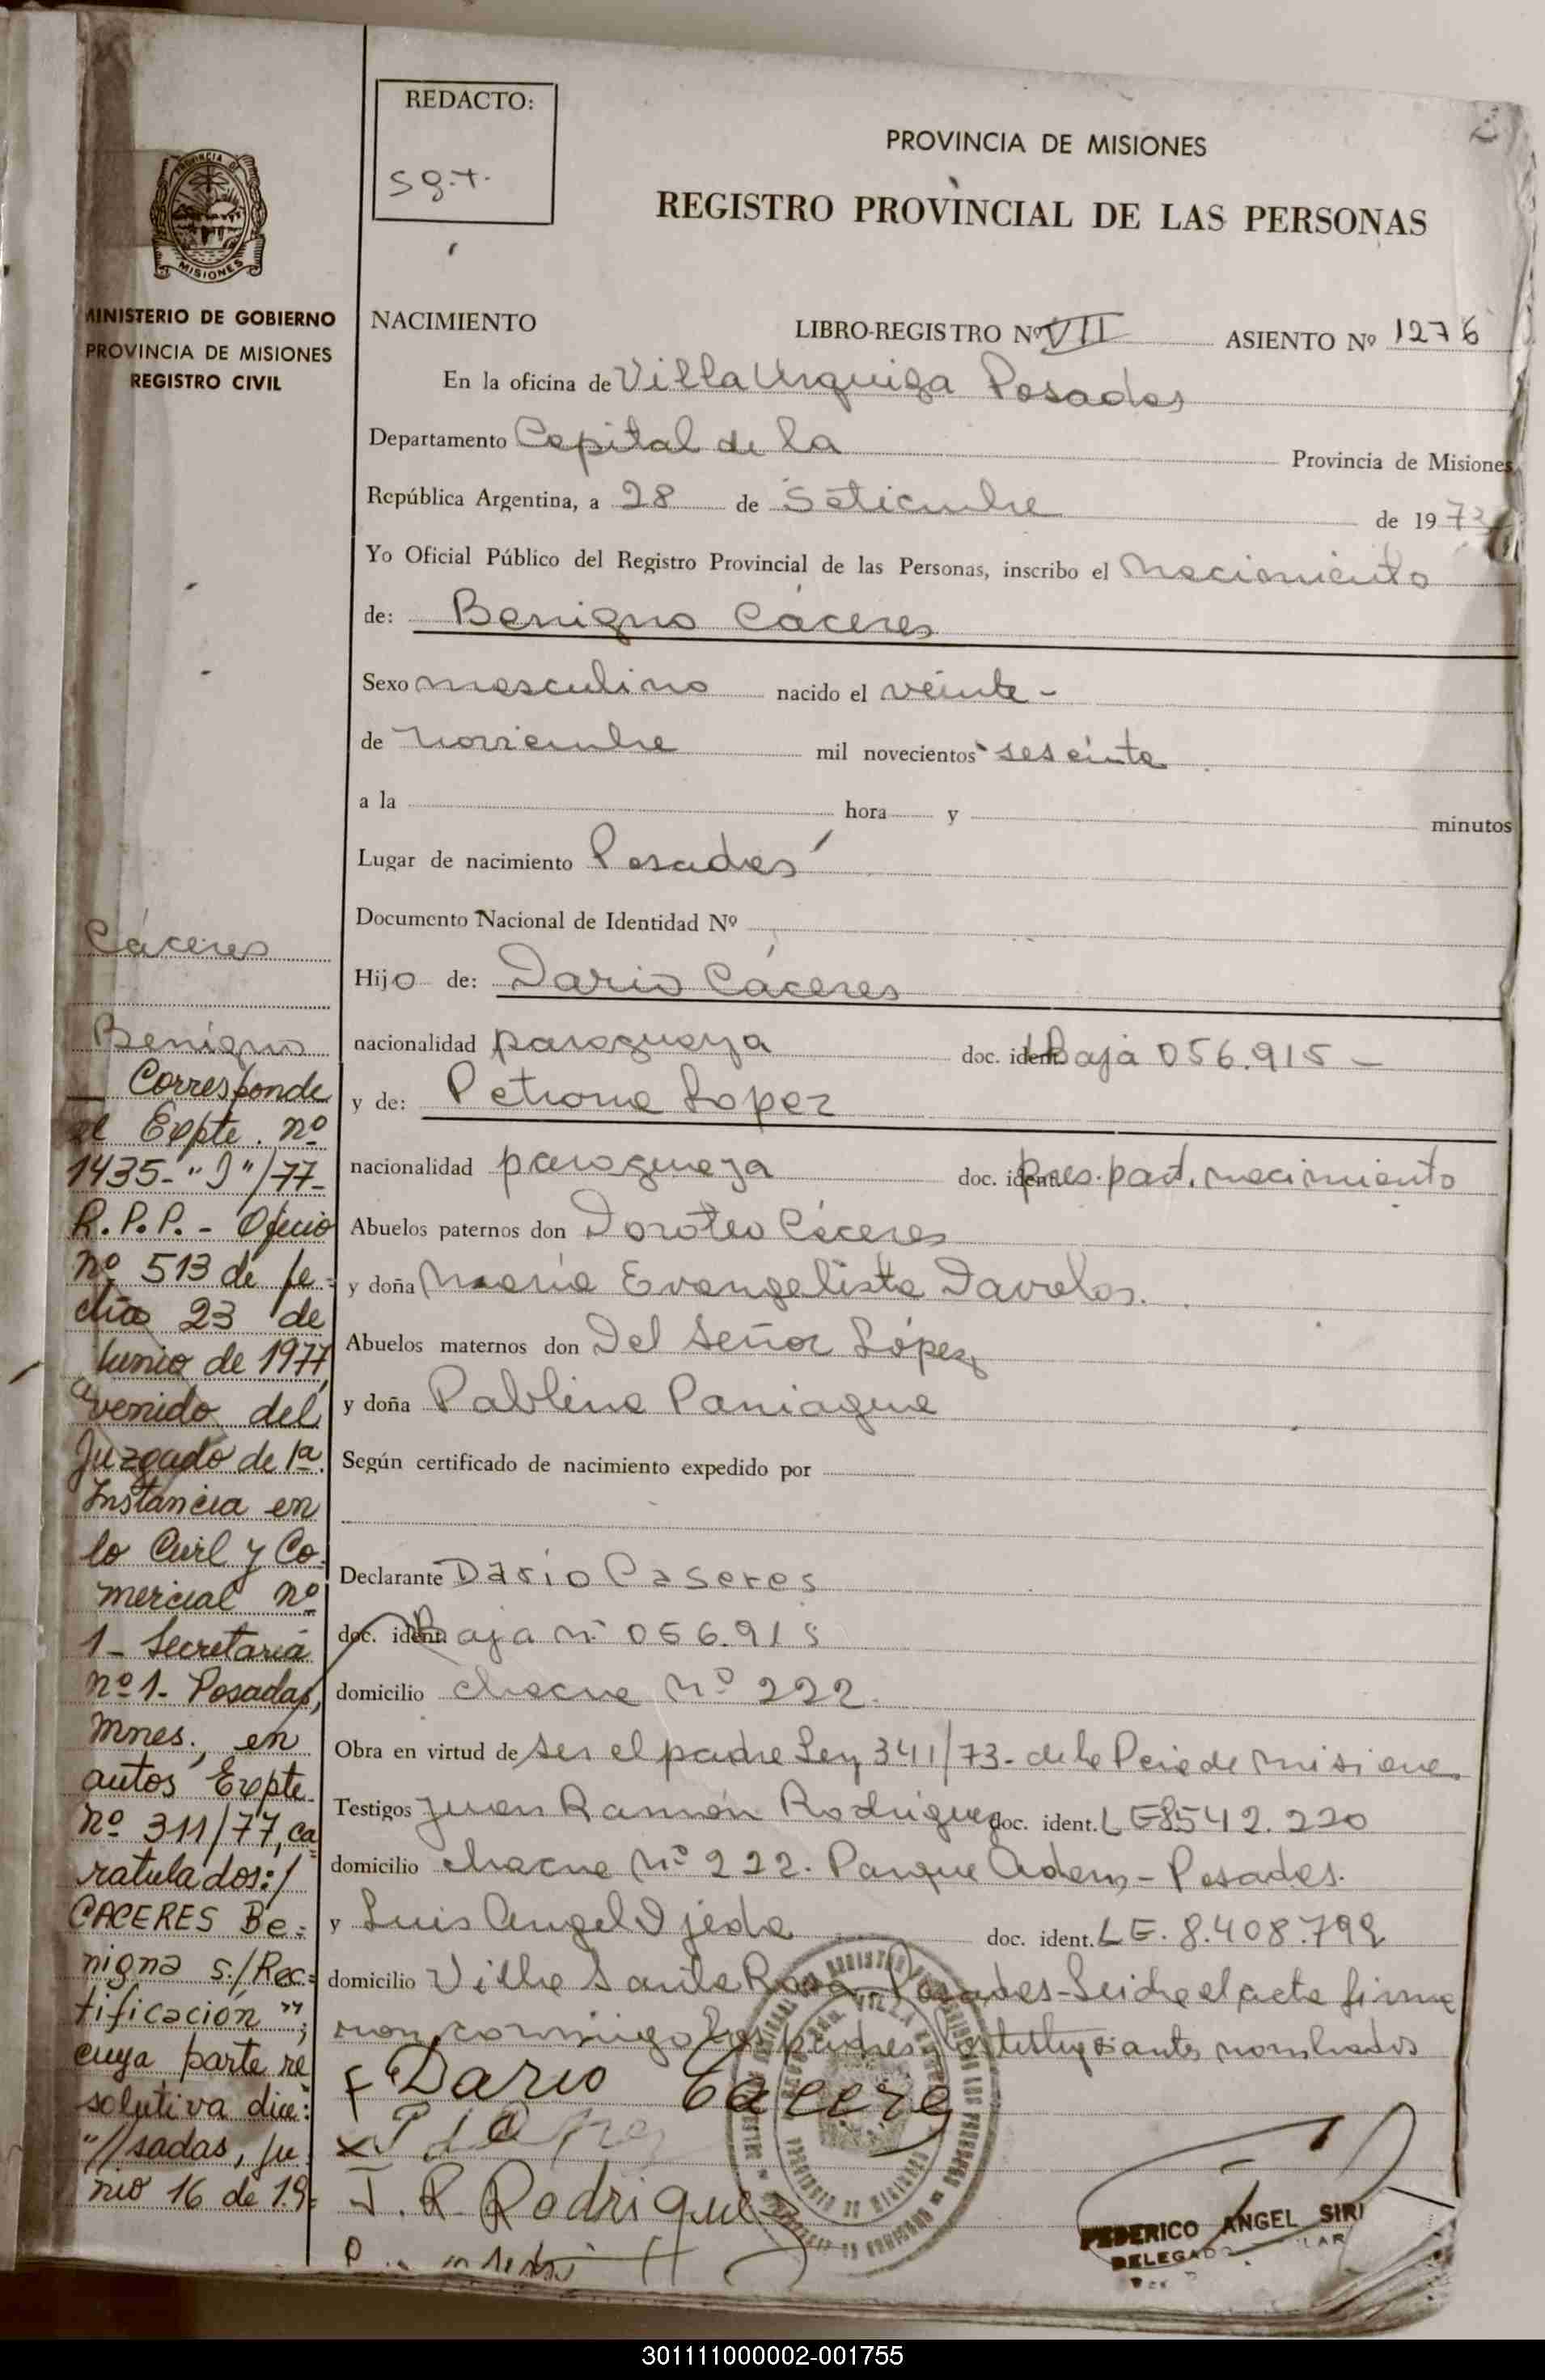 REDACTO:
sg.t.
PROVINCIA DE MISIONES
REGISTRO PROVINCIAL DE LAS PERSONAS
PROVINCIA DE
MISIONES
MINISTERIO DE GOBIERNO
PROVINCIA DE MISIONES
REGISTRO CIVIL
NACIMIENTO LIBRO-REGISTRO Nº VII ASIENTO Nº 1276
En la oficina de Villa Urquiza Posadas
Departamento Capital de la Provincia de Misiones
República Argentina, a 28 de Setiembre de 1973
Yo Oficial Público del Registro Provincial de las Personas, inscribo el nacimiento
de: Benigno Cáceres
Sexo masculino nacido el veinte -
de noviembre mil novecientos sesenta
a la hora y minutos
Lugar de nacimiento Posadas
Documento Nacional de Identidad Nº
Hijo de: Dario Cáceres
nacionalidad paraguaya doc. ident. Baja 056.915 -
y de: Petrona Lopez
nacionalidad paraguaya doc. ident. pres. part. nacimiento
Abuelos paternos don Doroteo Cáceres
y doña María Evangelista Davalos.
Abuelos maternos don Del Señor López
y doña Pablina Paniagua
Según certificado de nacimiento expedido por
Declarante Dario Caseres
doc. ident. Baja nº 056.915
domicilio chacra Nº 222.
Obra en virtud de ser el padre Ley 341/73- de la Pcia de Misiones
Testigos Juan Ramón Rodriguez doc. ident. LE 8542.220
domicilio chacra Nº 222. Parque Adam - Posadas.
y Luis Angel Ojeda doc. ident. LE. 8.408.799
domicilio Villa Santa Rosa Posadas - Leida el acta firma
ron conmigo los padres y testigos antes nombrados
Dario Cacere
J. R. Rodriguez
FEDERICO ANGEL SIRI
Cáceres
Benigno
Corresponde
al Expte. nº
1435-"J"/77-
R.P.P. - Oficio
nº 513 de fe-
cha 23 de
Junio de 1977,
venido del
Juzgado de 1ª
Instancia en
lo Civil y Co-
mercial nº
1- Secretaria
nº 1- Posadas,
Mnes., en
autos Expte.
nº 311/77, ca
ratulados:/
CACERES Be=
nigna s./Rec=
tificación";
cuya parte re
solutiva dice:
"//sadas, Ju
nio 16 de 19=
301111000002-001755